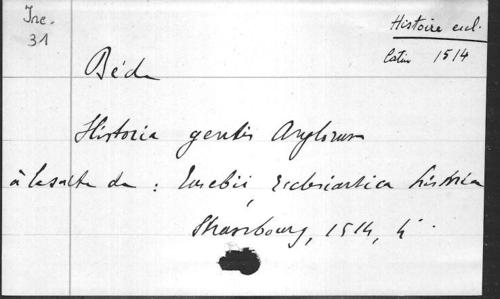 Inc.
31
Histoire eccl.
latin 1514
Béda
Historia gentis Anglorum
à la suite de : Eusebii, Ecclesiastica historia
Strasbourg, 1514, 4°